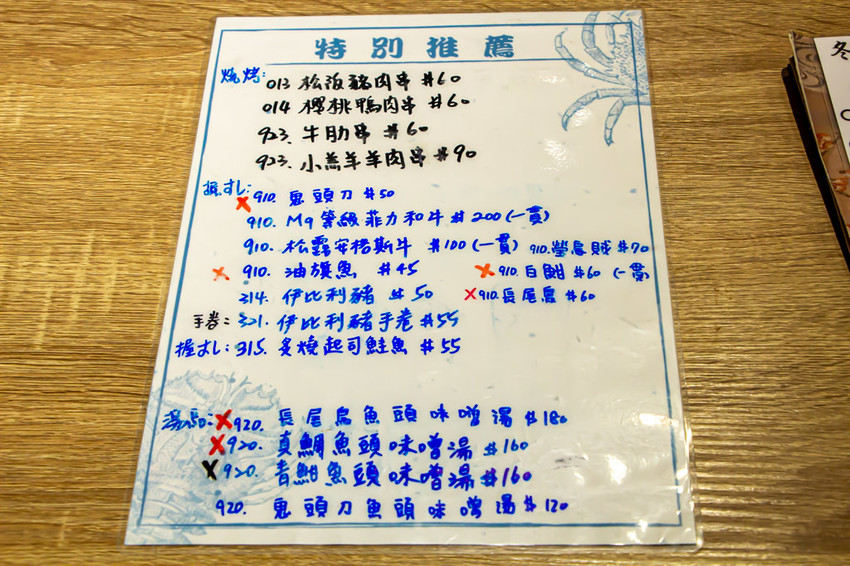 特別推薦
燒烤: 013 松阪豬肉串 #60
014 櫻桃鴨肉串 #60
923. 牛肋串 #60
923. 小羔羊羊肉串 #90
握すし: X 910. 鬼頭刀 #50
910. M9等級菲力和牛 #200 (一貫)
910. 松露安格斯牛 #100 (一貫) 910. 螢烏賊 #70
X 910. 油旗魚 #45 X 910. 白魽 #60 (一貫)
314. 伊比利豬 #50 X 910. 長尾鳥 #60
手卷: 321. 伊比利豬手卷 #55
握すし: 315. 炙燒起司鮭魚 #55
湯品: X 920. 長尾鳥魚頭味噌湯 #180
X 920. 真鯛魚頭味噌湯 #160
X 920. 青魽魚頭味噌湯 #160
920. 鬼頭刀魚頭味噌湯 #120
冬